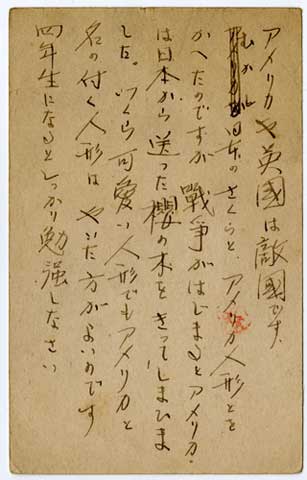 アメリカや英國は敵國です、
むかし日本のさくらと、アメリカ人形とを
かへたのですが戰爭がはじまるとアメリカ
は日本から送った櫻の木をきってしまひま
した。いくら可愛い人形でもアメリカと
名の付く人形はやいた方がよいのです
四年生になるとしっかり勉强しなさい